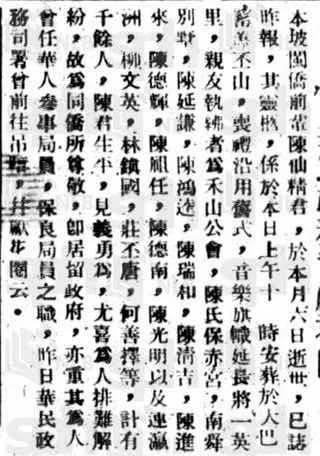 本坡閩僑前輩陳仙精君，於本月六日逝世，已誌
昨報，其靈柩，係於本日上午十　時安葬於大巴
窰善丕山，喪禮沿用舊式，音樂旗幟延長將一英
里，親友執紼者為禾山公會，陳氏保赤宮，南舜
別墅，陳延謙，陳鴻逵，陳瑞和，陳清吉，陳進
來，陳德輝，陳祖任，陳德南，陳光明以及連瀛
洲，柳文英，林鎮國，莊丕唐，何善擇等，計有
千餘人，陳君生平，見義勇為，尤喜為人排難解
紛，故為同僑所尊敬，卽居留政府，亦重其為人
曾任華人參事局員，保良局員之職，昨日華民政
務司署曾前往吊唁，幷獻花圈云。